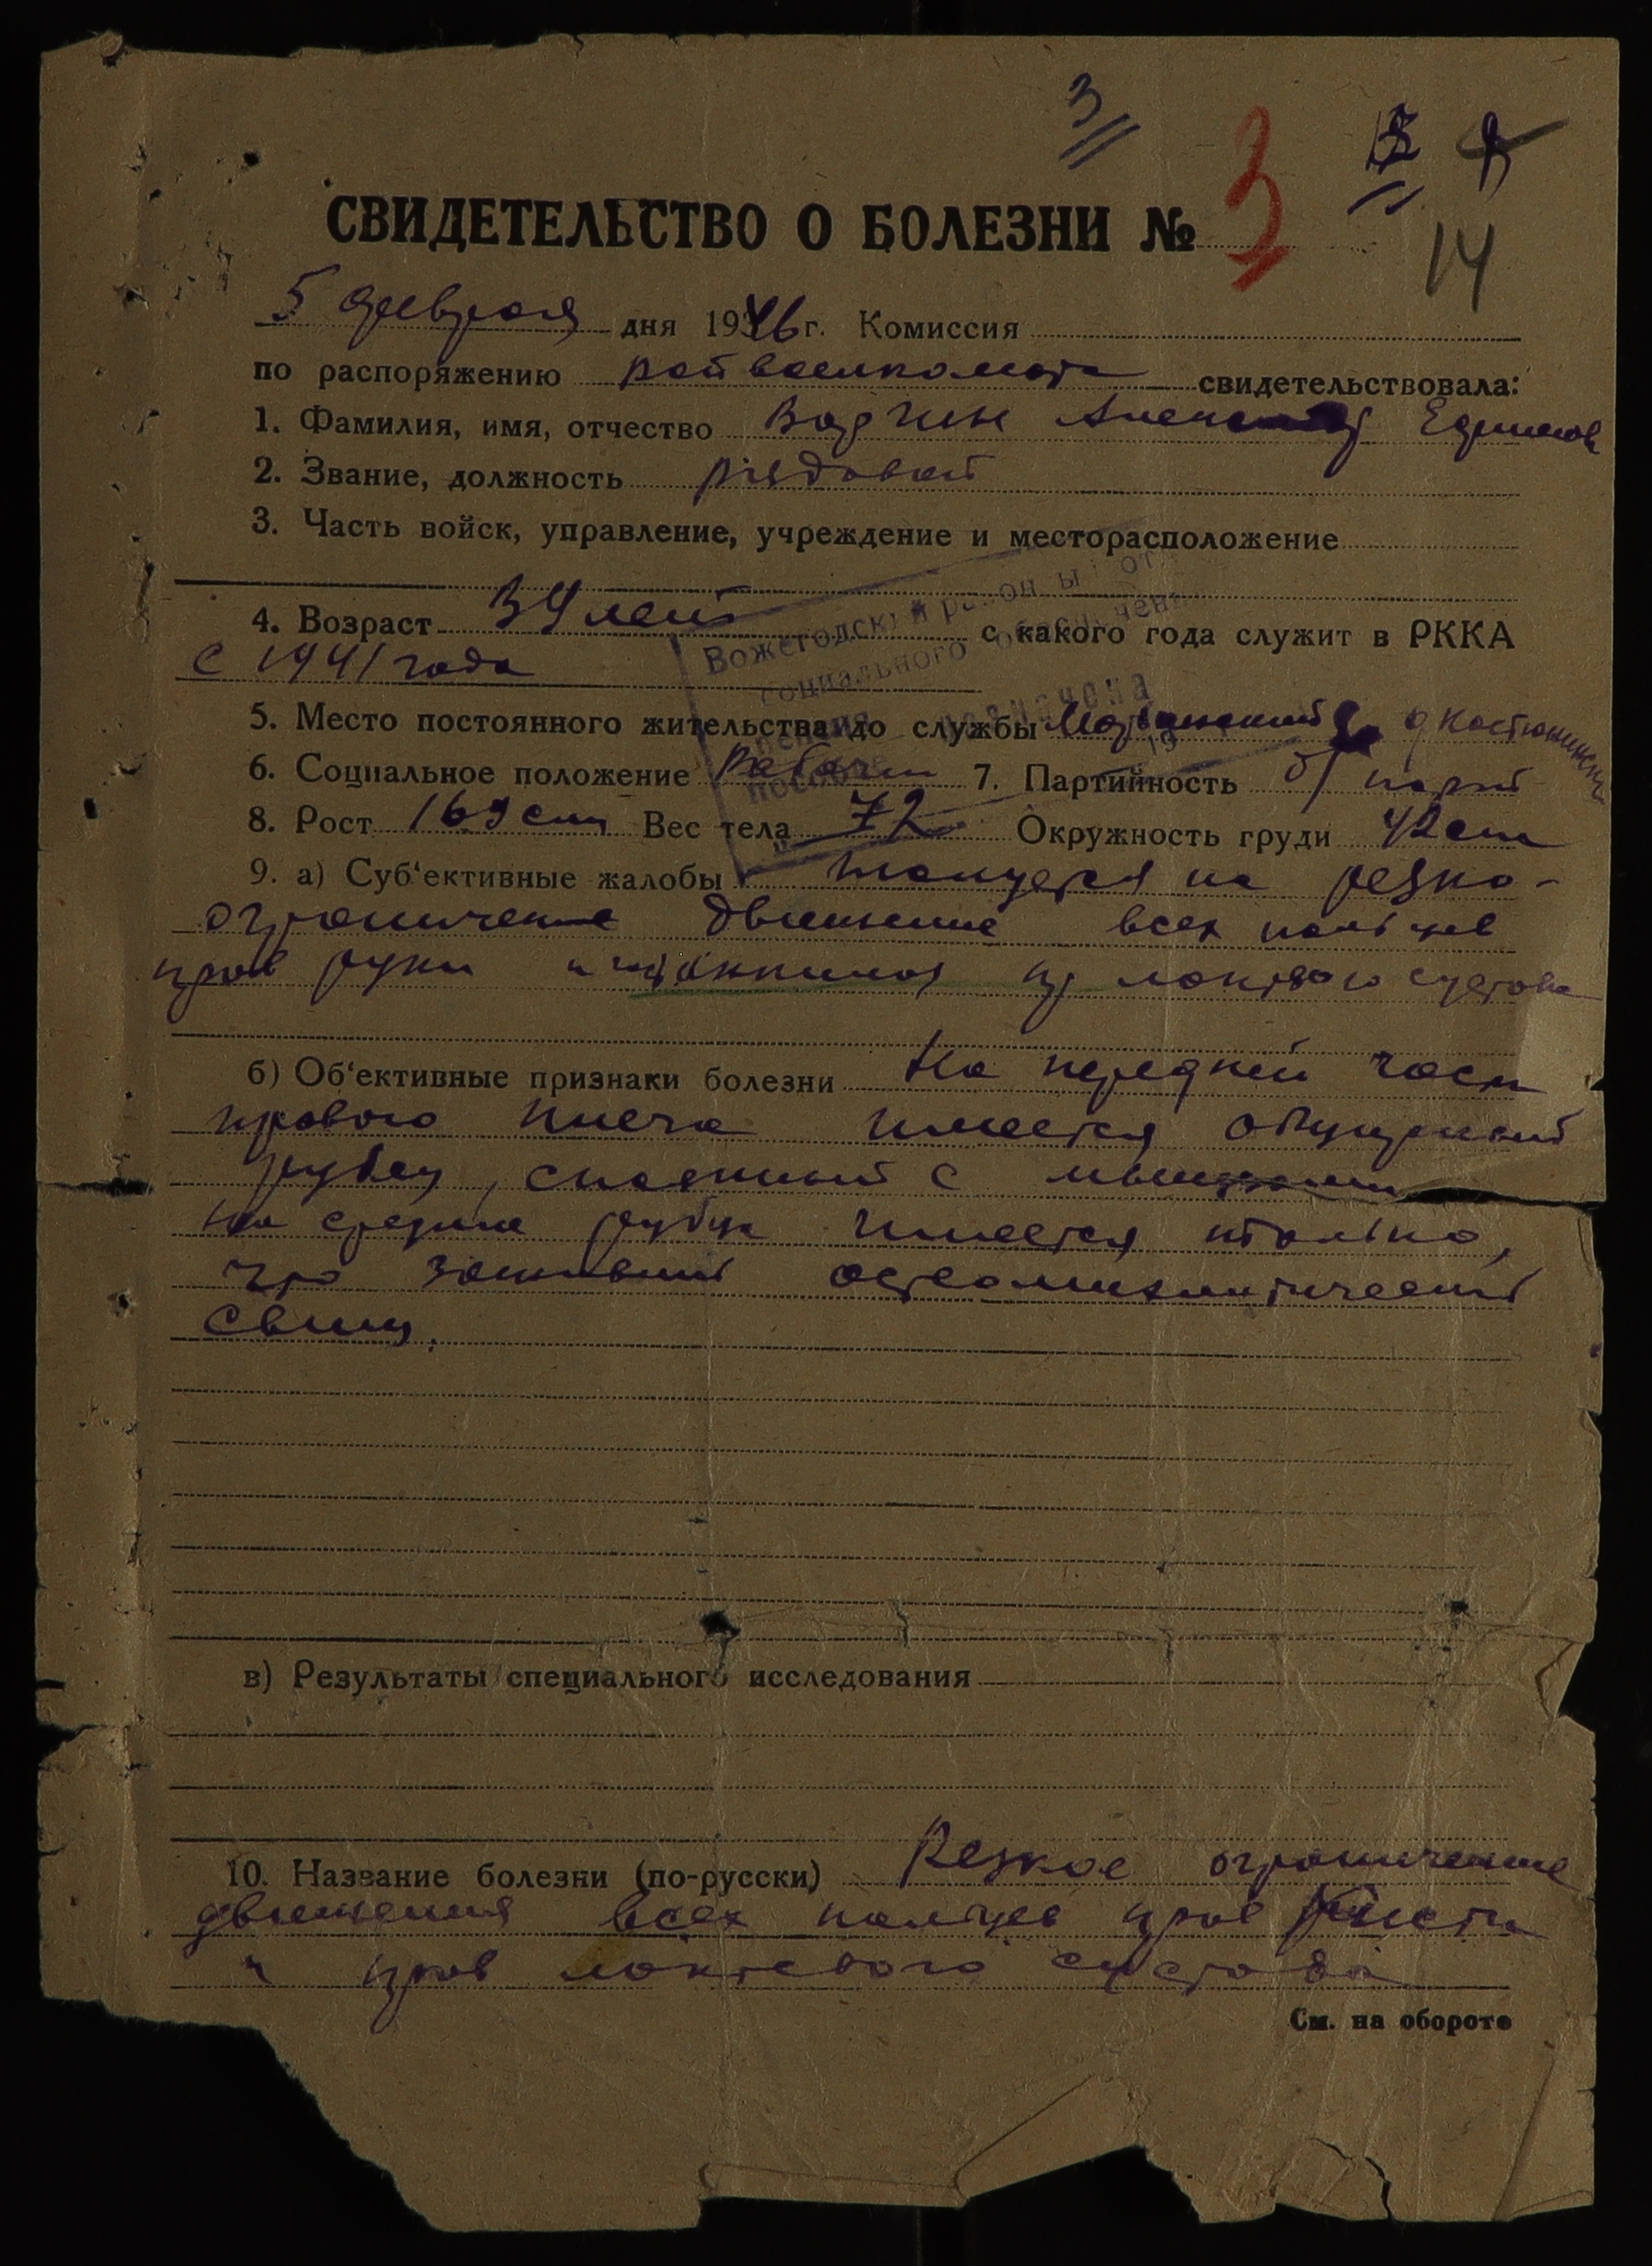 3
14
СВИДЕТЕЛЬСТВО О БОЛЕЗНИ № 3
5 февраля дня 1946 г. Комиссия
по распоряжению райвоенкомата свидетельствовала:
1. Фамилия, имя, отчество
2. Звание, должность рядовой
3. Часть войск, управление, учреждение и месторасположение
4. Возраст 39 лет с какого года служит в РККА
с 1941 года
Вожегодский район
социального
5. Место постоянного жительства до службы
назначена
6. Социальное положение Рабочий 7. Партийность б/парт
пособие
8. Рост 169 см Вес тела 72 Окружность груди 92 см
9. а) Суб'ективные жалобы жалуется на резко-
ограничение движение всех пальцев
прав руки локтевого сустава
б) Об'ективные признаки болезни На передней части
правого плеча имеется
рубец, спаянный с мышцами
на средине рубца имеется только,
что заживший остеомиелитический
свищ.
в) Результаты специального исследования
10. Название болезни (по-русски) Резкое ограничение
движения всех пальцев прав кисти
и прав локтевого сустава
См. на обороте